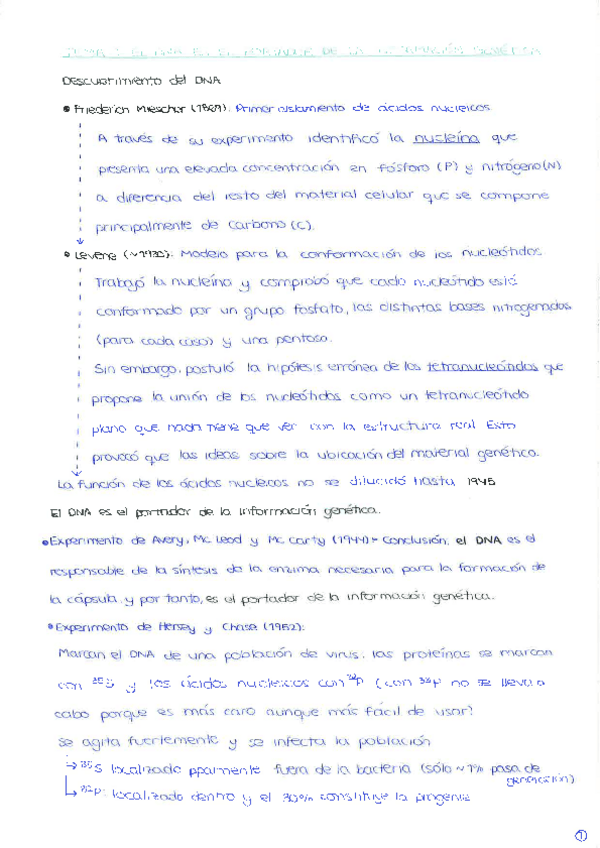 TEMA 1: EL DNA ES EL PORTADOR DE LA INFORMACIÓN GENÉTICA
Descubrimiento del DNA
• Friederich Miescher (1869): Primer aislamiento de ácidos nucleicos
A través de su experimento identificó la nucleína que
presenta una elevada concentración en fósforo (P) y nitrógeno (N)
a diferencia del resto del material celular que se compone
principalmente de carbono (C).
• Levene (~1920): Modelo para la conformación de los nucleótidos
Trabajó la nucleína y comprobó que cada nucleótido está
conformado por un grupo fosfato, las distintas bases nitrogenadas
(para cada caso) y una pentosa.
Sin embargo, postuló la hipótesis errónea de los tetranucleótidos que
propone la unión de los nucleótidos como un tetranucleótido
plano que nada tiene que ver con la estructura real Esto
provocó que las ideas sobre la ubicación del material genético.
La función de los ácidos nucleicos no se dilucidó hasta 1945
El DNA es el portador de la información genética.
• Experimento de Avery, Mc Leod y Mc Carty (1944) - Conclusión: el DNA es el
responsable de la síntesis de la enzima necesaria para la formación de
la cápsula, y por tanto, es el portador de la información genética.
• Experimento de Hersey y Chase (1952):
Marcan el DNA de una población de virus. las proteínas se marcan
con ³⁵S y los ácidos nucleicos con ³²P (con ³³P no se lleva a
cabo porque es más caro aunque más fácil de usar)
Se agita fuertemente y se infecta la población
↳ ³⁵S localizado ppalmente fuera de la bacteria (sólo ~1% pasa de
generación)
↳ ³²P: localizado dentro y el 30% constituye la progenie
1